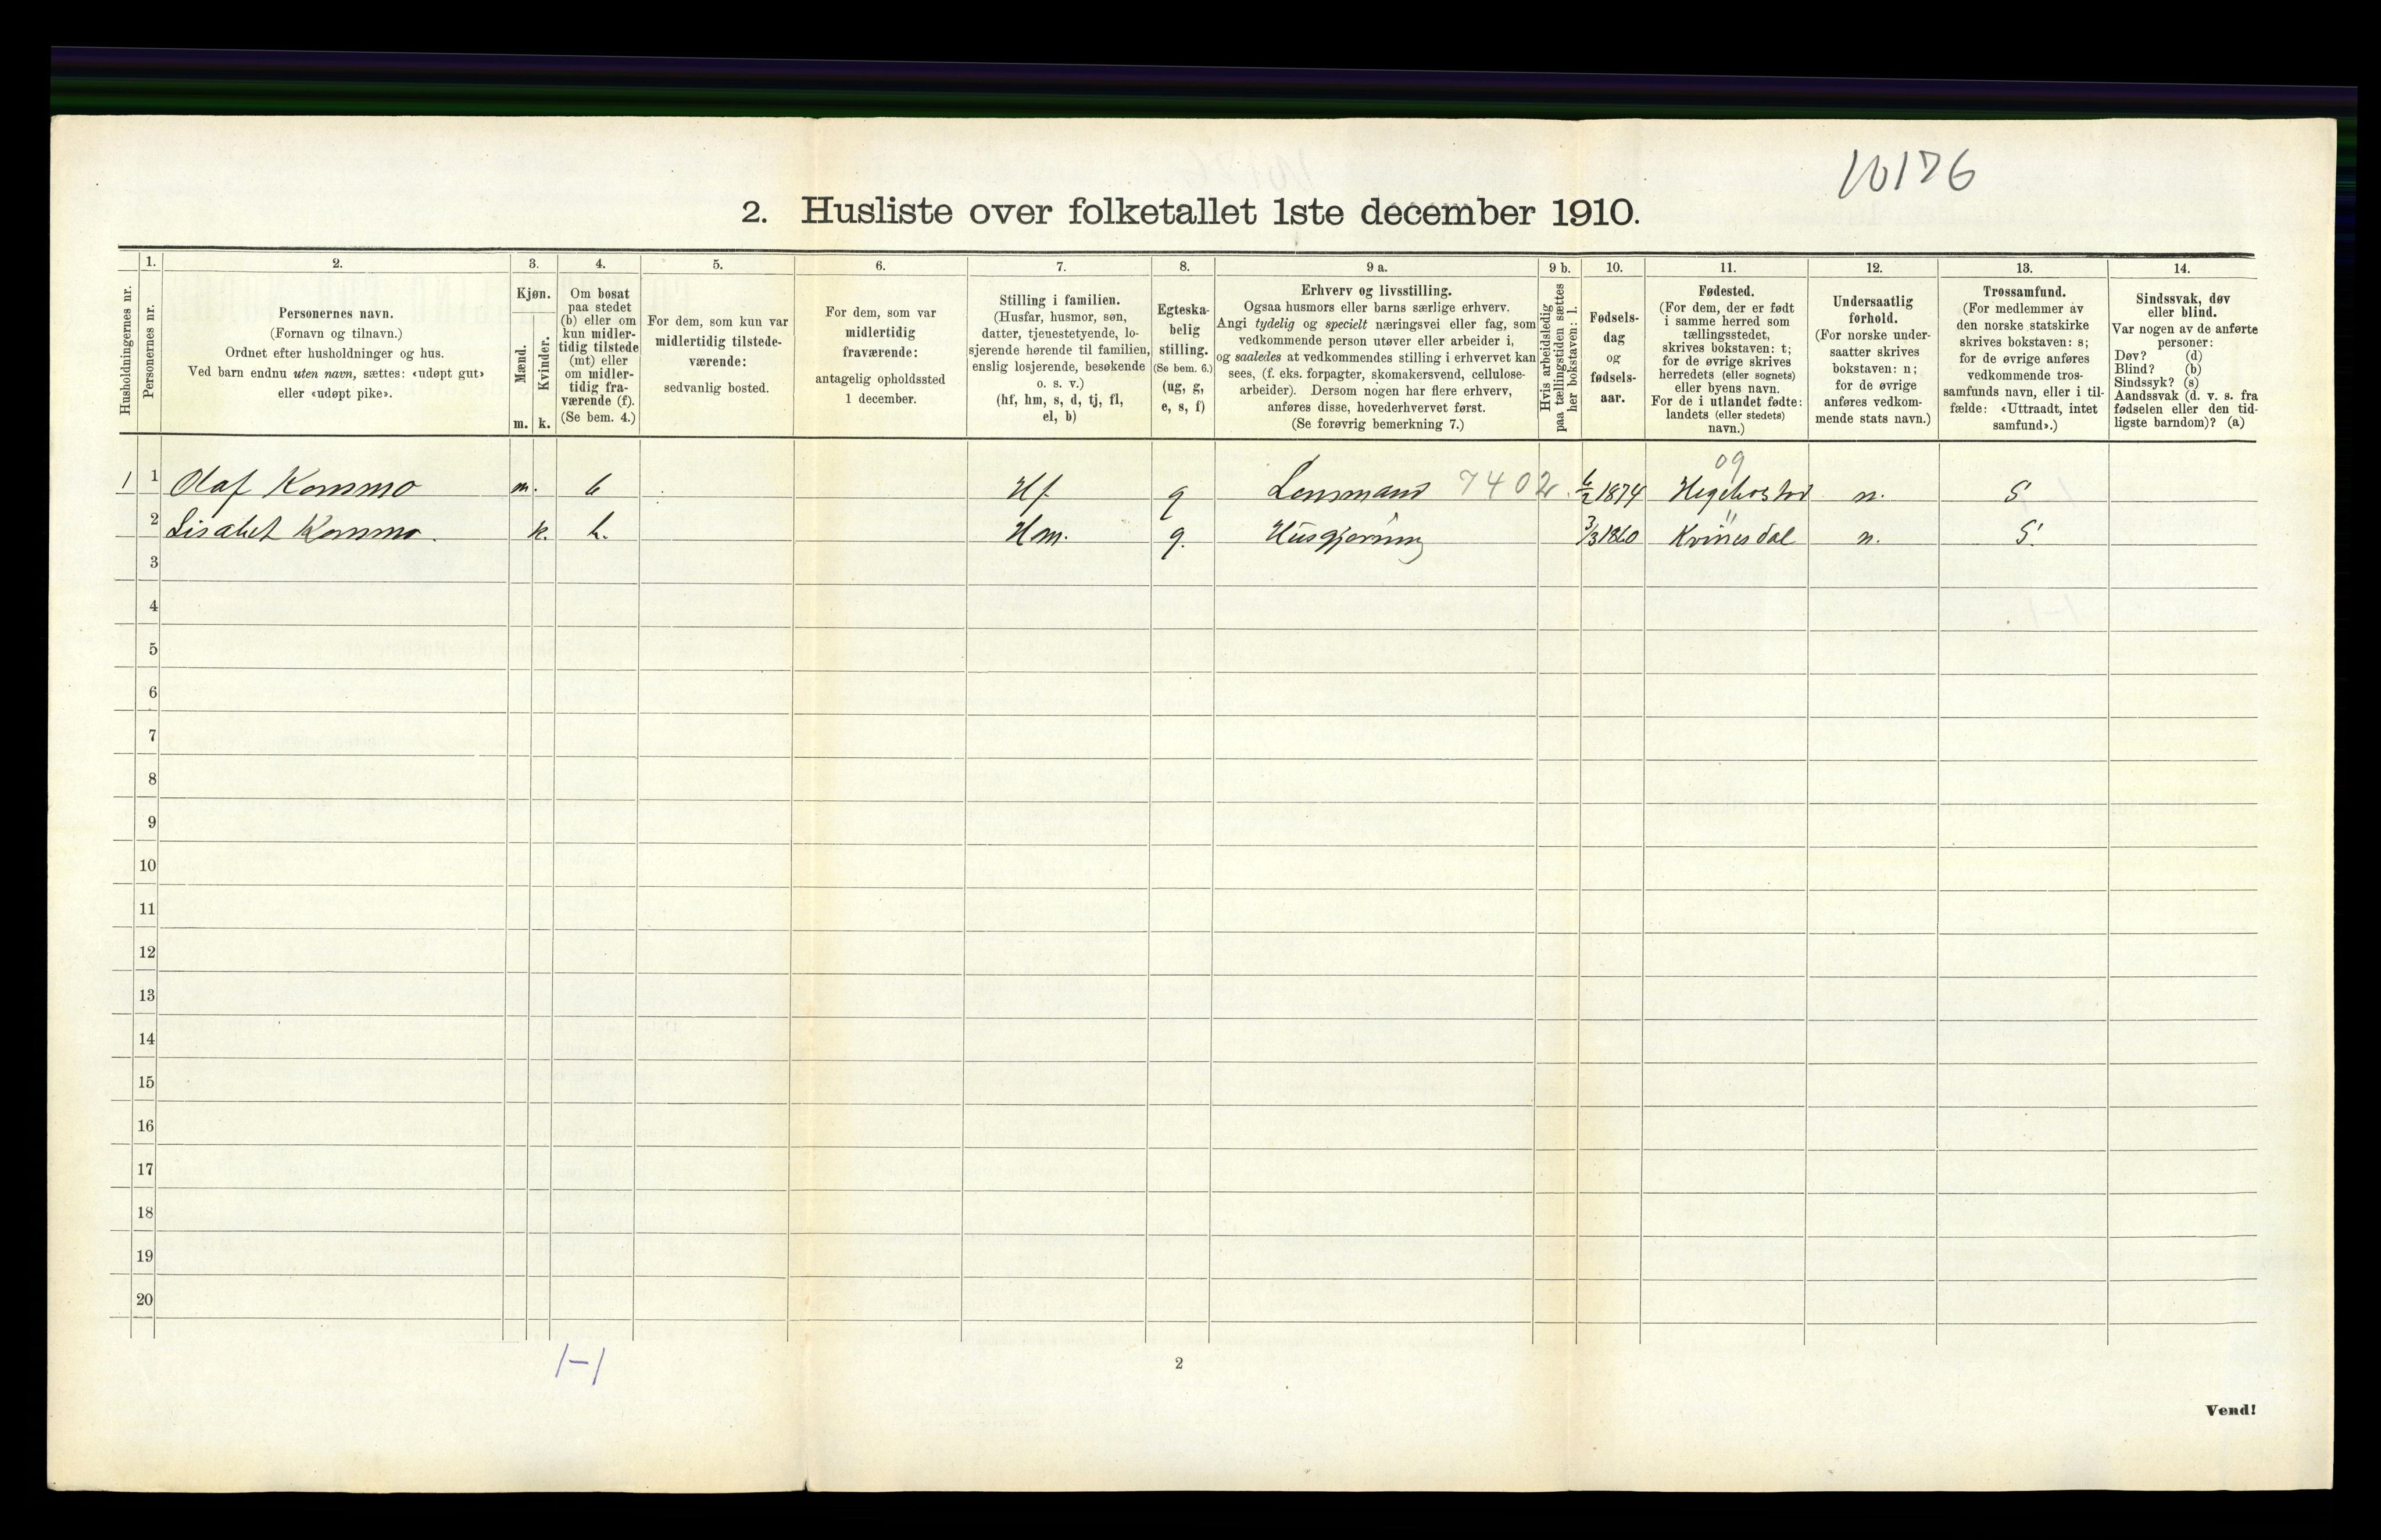 10176
2. Husliste over folketallet 1ste december 1910.
Husholdningernes nr.
1.
Personernes nr.
2.
Personernes navn.
(Fornavn og tilnavn.)
Ordnet efter husholdninger og hus.
Ved barn endnu uten navn, sættes: «udøpt gut»
eller «udøpt pike».
3.
Kjøn.
Mænd.
Kvinder.
m. k.
4.
Om bosat
paa stedet
(b) eller om
kun midler-
tidig tilstede
(mt) eller
om midler-
tidig fra-
værende (f).
(Se bem. 4.)
5.
For dem, som kun var
midlertidig tilstede-
værende:
sedvanlig bosted.
6.
For dem, som var
midlertidig
fraværende:
antagelig opholdssted
1 december.
7.
Stilling i familien.
(Husfar, husmor, søn,
datter, tjenestetyende, lo-
sjerende hørende til familien,
enslig losjerende, besøkende
o. s. v.)
(hf, hm, s, d, tj, fl,
el, b)
8.
Egteska-
belig
stilling.
(Se bem. 6.)
(ug, g,
e, s, f)
9 a.
Erhverv og livsstilling.
Ogsaa husmors eller barns særlige erhverv.
Angi tydelig og specielt næringsvei eller fag, som
vedkommende person utøver eller arbeider i,
og saaledes at vedkommendes stilling i erhvervet kan
sees, (f. eks. forpagter, skomakersvend, cellulose-
arbeider). Dersom nogen har flere erhverv,
anføres disse, hovederhvervet først.
(Se forøvrig bemerkning 7.)
9 b.
Hvis arbeidsledig
paa tællingstiden sættes
her bokstaven: l.
10.
Fødsels-
dag
og
fødsels-
aar.
11.
Fødested.
(For dem, der er født
i samme herred som
tællingsstedet,
skrives bokstaven: t;
for de øvrige skrives
herredets (eller sognets)
eller byens navn.
For de i utlandet fødte:
landets (eller stedets)
navn.)
12.
Undersaatlig
forhold.
(For norske under-
saatter skrives
bokstaven: n;
for de øvrige
anføres vedkom-
mende stats navn.)
13.
Trossamfund.
(For medlemmer av
den norske statskirke
skrives bokstaven: s;
for de øvrige anføres
vedkommende tros-
samfunds navn, eller i til-
fælde: «Uttraadt, intet
samfund».)
14.
Sindssvak, døv
eller blind.
Var nogen av de anførte
personer:
Døv? (d)
Blind? (b)
Sindssyk? (s)
Aandssvak (d. v. s. fra
fødselen eller den tid-
ligste barndom)? (a)
09
1 1 Olaf Kommo m. b Hf. g Lensmand 7402 6/2 1874 Hegebostad n. S
"
2 Lisabet Kommo. k. b. Hm. g. Husgjerning 3/3 1860 Kvinesdal n. S.
3
4
5
6
7
8
9
10
11
12
13
14
15
16
17
18
19
20
1-1
2
Vend!